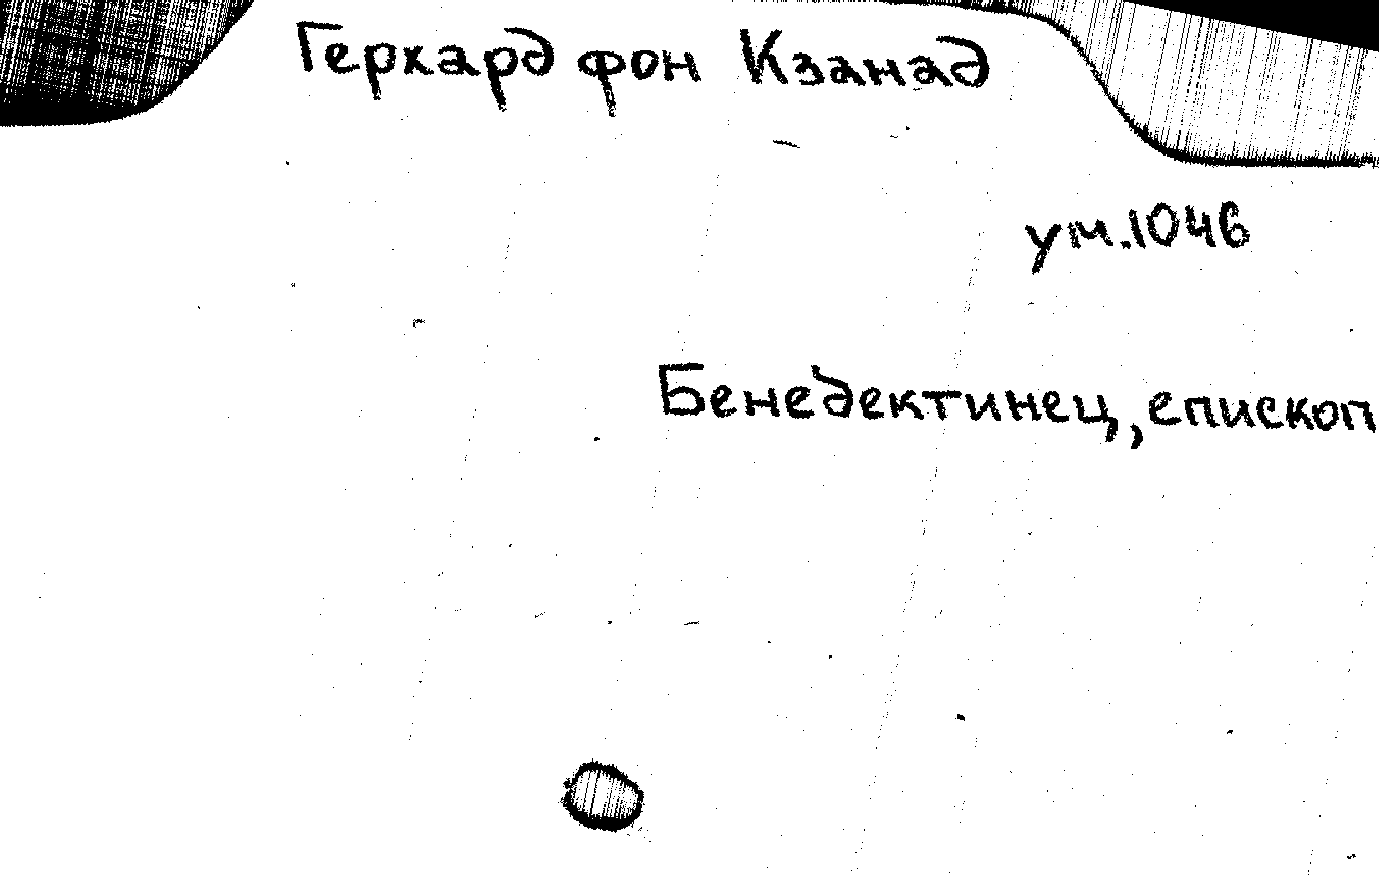 Герхард фон Кзанад
ум.1046
Бенедектинец, епископ